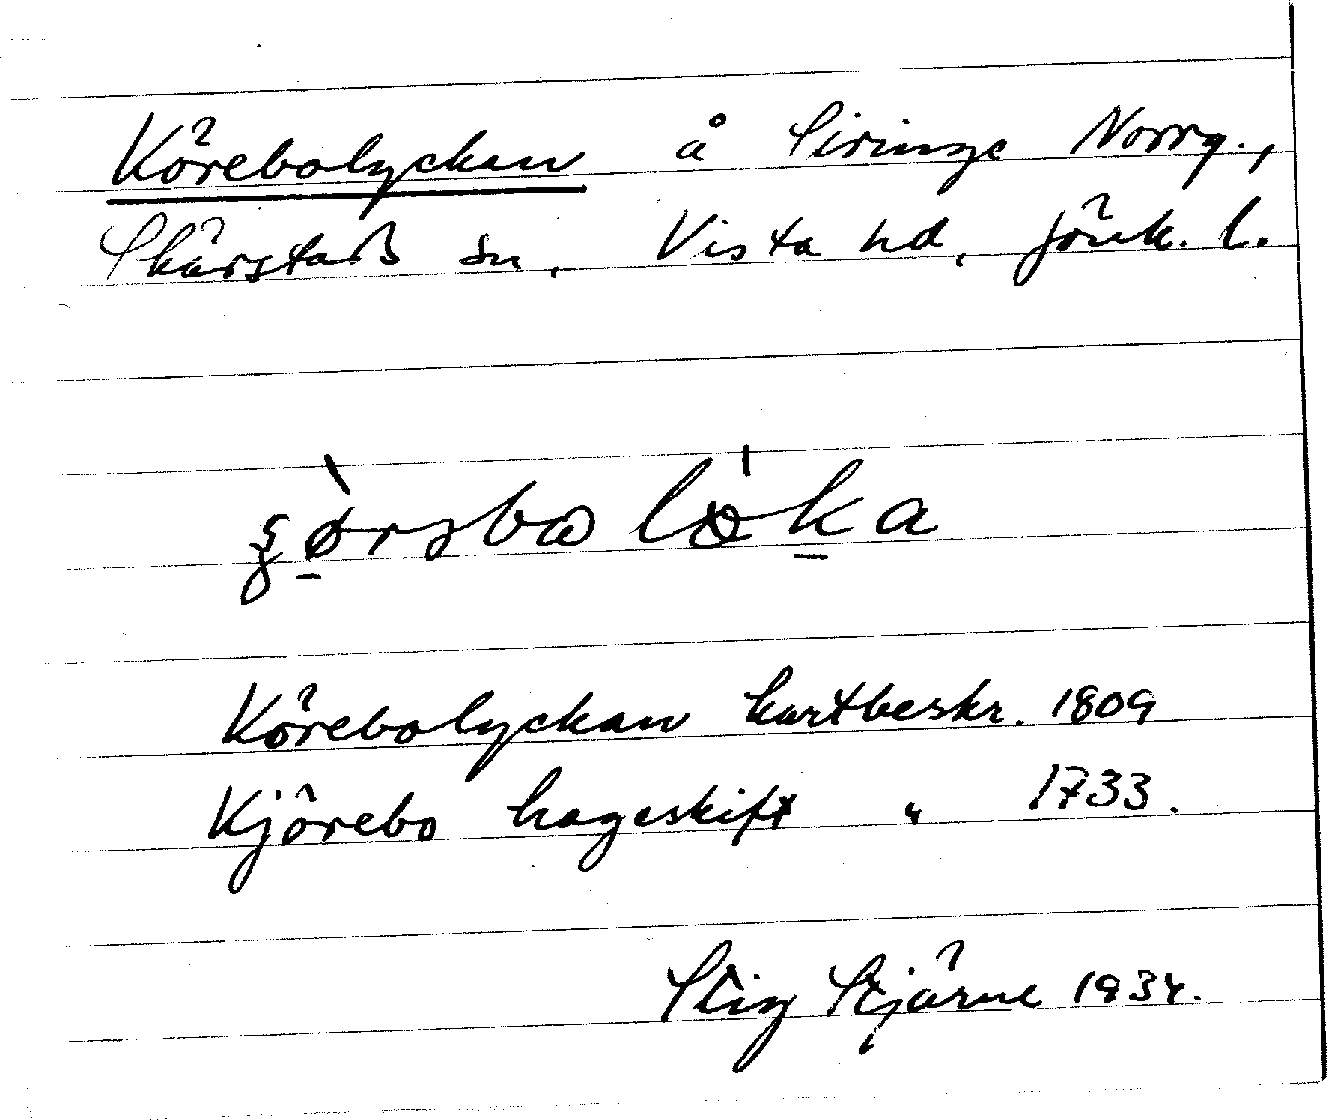 Körebolyckan å Siringe Norrg.,
Skärstads sn, Vista hd, Jönk. l.
Körebolyckan kartbeskr. 1809
Kjörebo hageskift " 1733.
Stig Stjärne 1934.